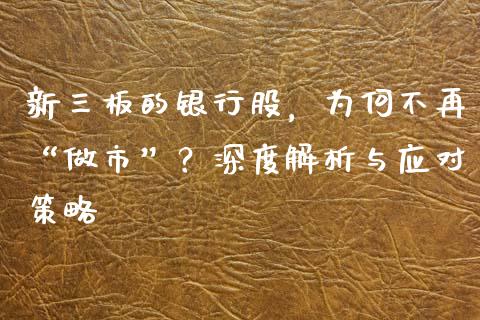 新三板的银行股，为何不再
“做市”？深度解析与应对
策略